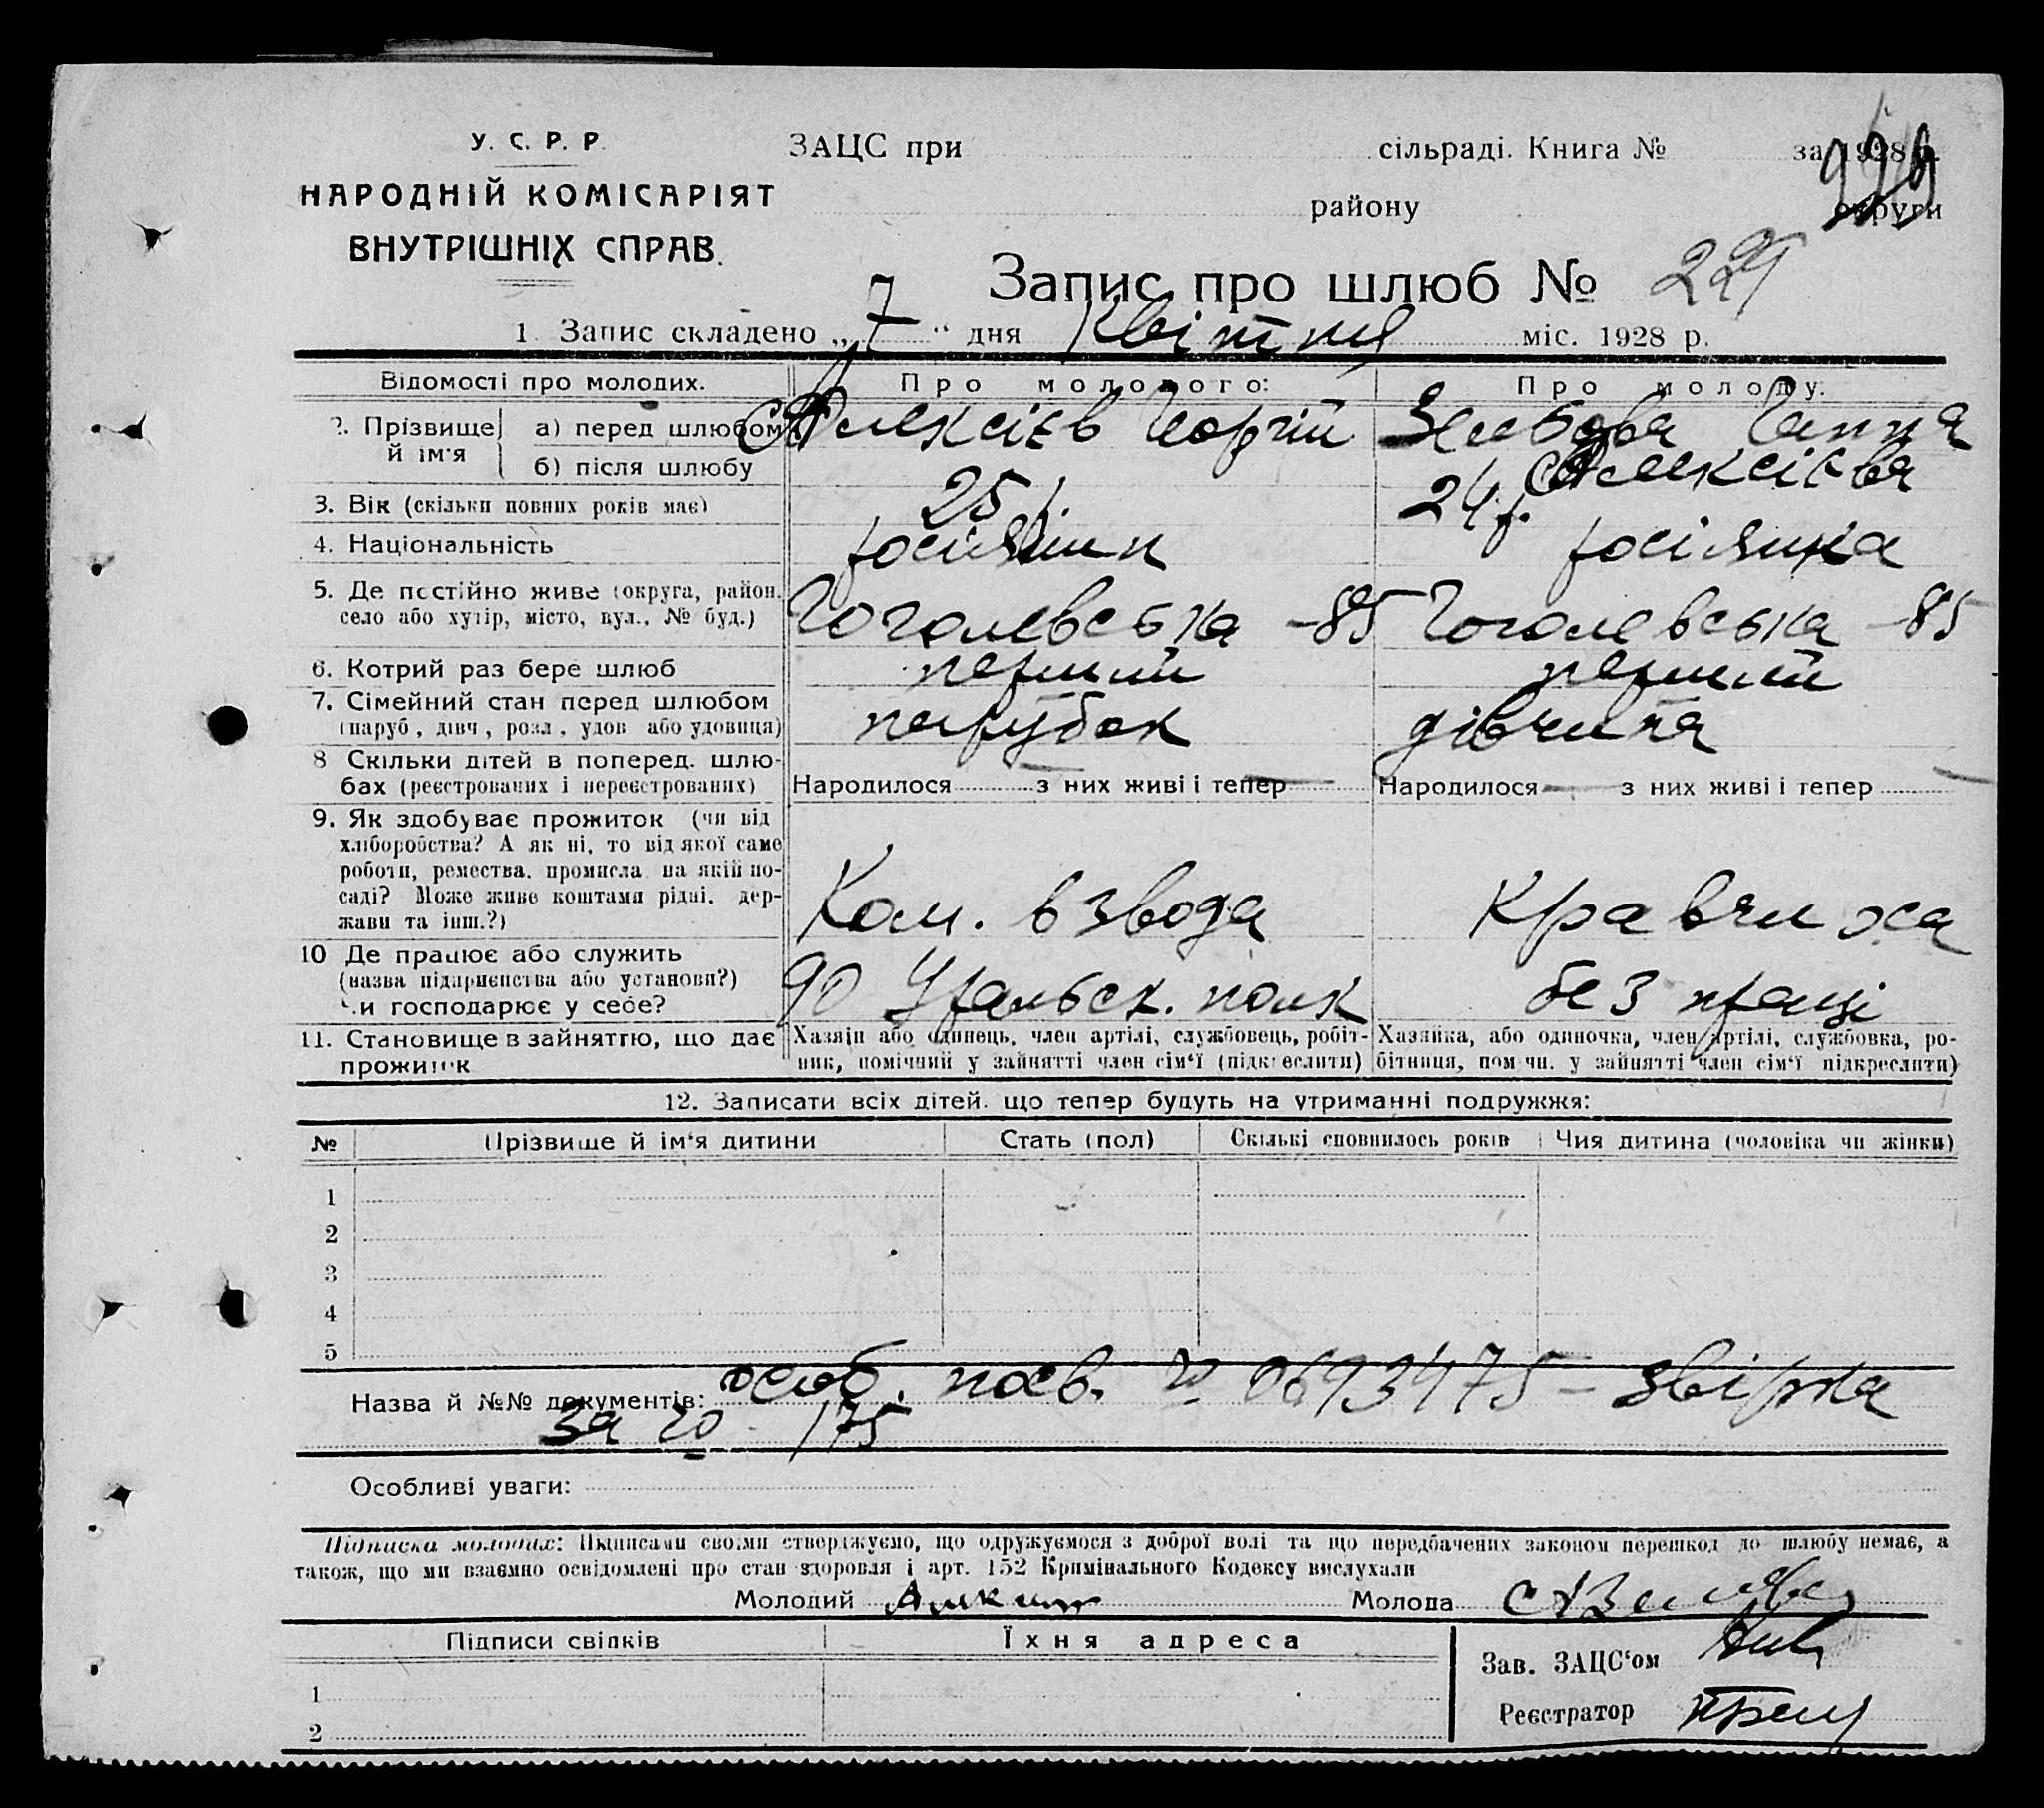 У. С. Р. Р.
НАРОДНІЙ КОМІСАРІЯТ
ВНУТРІШНІХ СПРАВ.
ЗАЦС при сільраді. Книга № за 1928 р.
району округи
Запис про шлюб № 229
1. Запис складено „7“ дня Квітня міс. 1928 р.
Відомості про молодих. Про молодого: Про молоду:
2. Прізвище й ім'я
а) перед шлюбом Алексієв Георгій Ганна
б) після шлюбу Алексієва
3. Вік (скільки повних років має) 25 р. 24 р.
4. Національність росіянин росіянка
5. Де постійно живе (округа, район,
село або хутір, місто, вул., № буд.) Гоголевська -85 Гоголевська -85
6. Котрий раз бере шлюб перший перший
7. Сімейний стан перед шлюбом
(паруб., дівч., розл., удов. або удовиця) парубок дівчина
8 Скільки дітей в поперед. шлю-
бах (реєстрованих і нереєстрованих) Народилося — з них живі і тепер — Народилося — з них живі і тепер —
9. Як здобуває прожиток (чи від
хліборобства? А як ні, то від якої саме
роботи, ремества, промисла, на якій по-
саді? Може живе коштами рідні, дер-
жави та інш.?) Ком. взвода Кравчиха
10 Де працює або служить
(назва підприємства або установи?)
Чи господарює у себе? 90 Уральск. полк без праці
11. Становище в зайняттю, що дає
прожиток
Хазяїн або одинець, член артілі, службовець, робіт-
ник, помічний у зайнятті член сім'ї (підкреслити)
Хазяйка, або одиночка, член артілі, службовка, ро-
бітниця, помічн. у зайнятті член сім'ї підкреслити)
12. Записати всіх дітей, що тепер будуть на утриманні подружжя:
№ Прізвище й ім'я дитини Стать (пол) Скількі сповнилось років Чия дитина (чоловіка чи жінки)
1
2
3
4
5
Назва й №№ документів: особ. посв. № 0693475 – звірка
за № 175
Особливі уваги:
Підписка молодих: Підписами своїми стверджуємо, що одружуємося з доброї волі та що передбачених законом перешкод до шлюбу немає, а
також, що ми взаємно освідомлені про стан здоровля і арт. 152 Кримінального Кодексу вислухали
Молодий Молода
Підписи свідків Їхня адреса
Зав. ЗАЦС'ом
1
Реєстратор
2